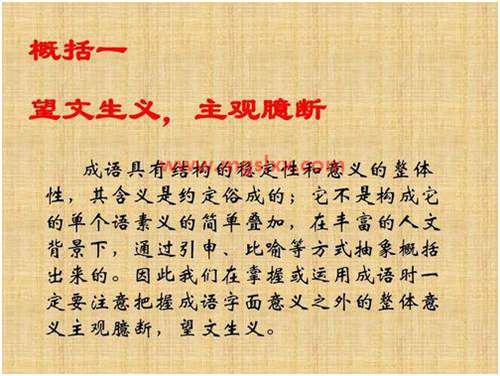 概括一
望文生义，主观臆断
成语具有结构的稳定性和意义的整体
性，其含义是约定俗成的；它不是构成它
的单个语素义的简单叠加，在丰富的人文
背景下，通过引申、比喻等方式抽象概括
出来的。因此我们在掌握或运用成语时一
定要注意把握成语字面意义之外的整体意
义主观臆断，望文生义。